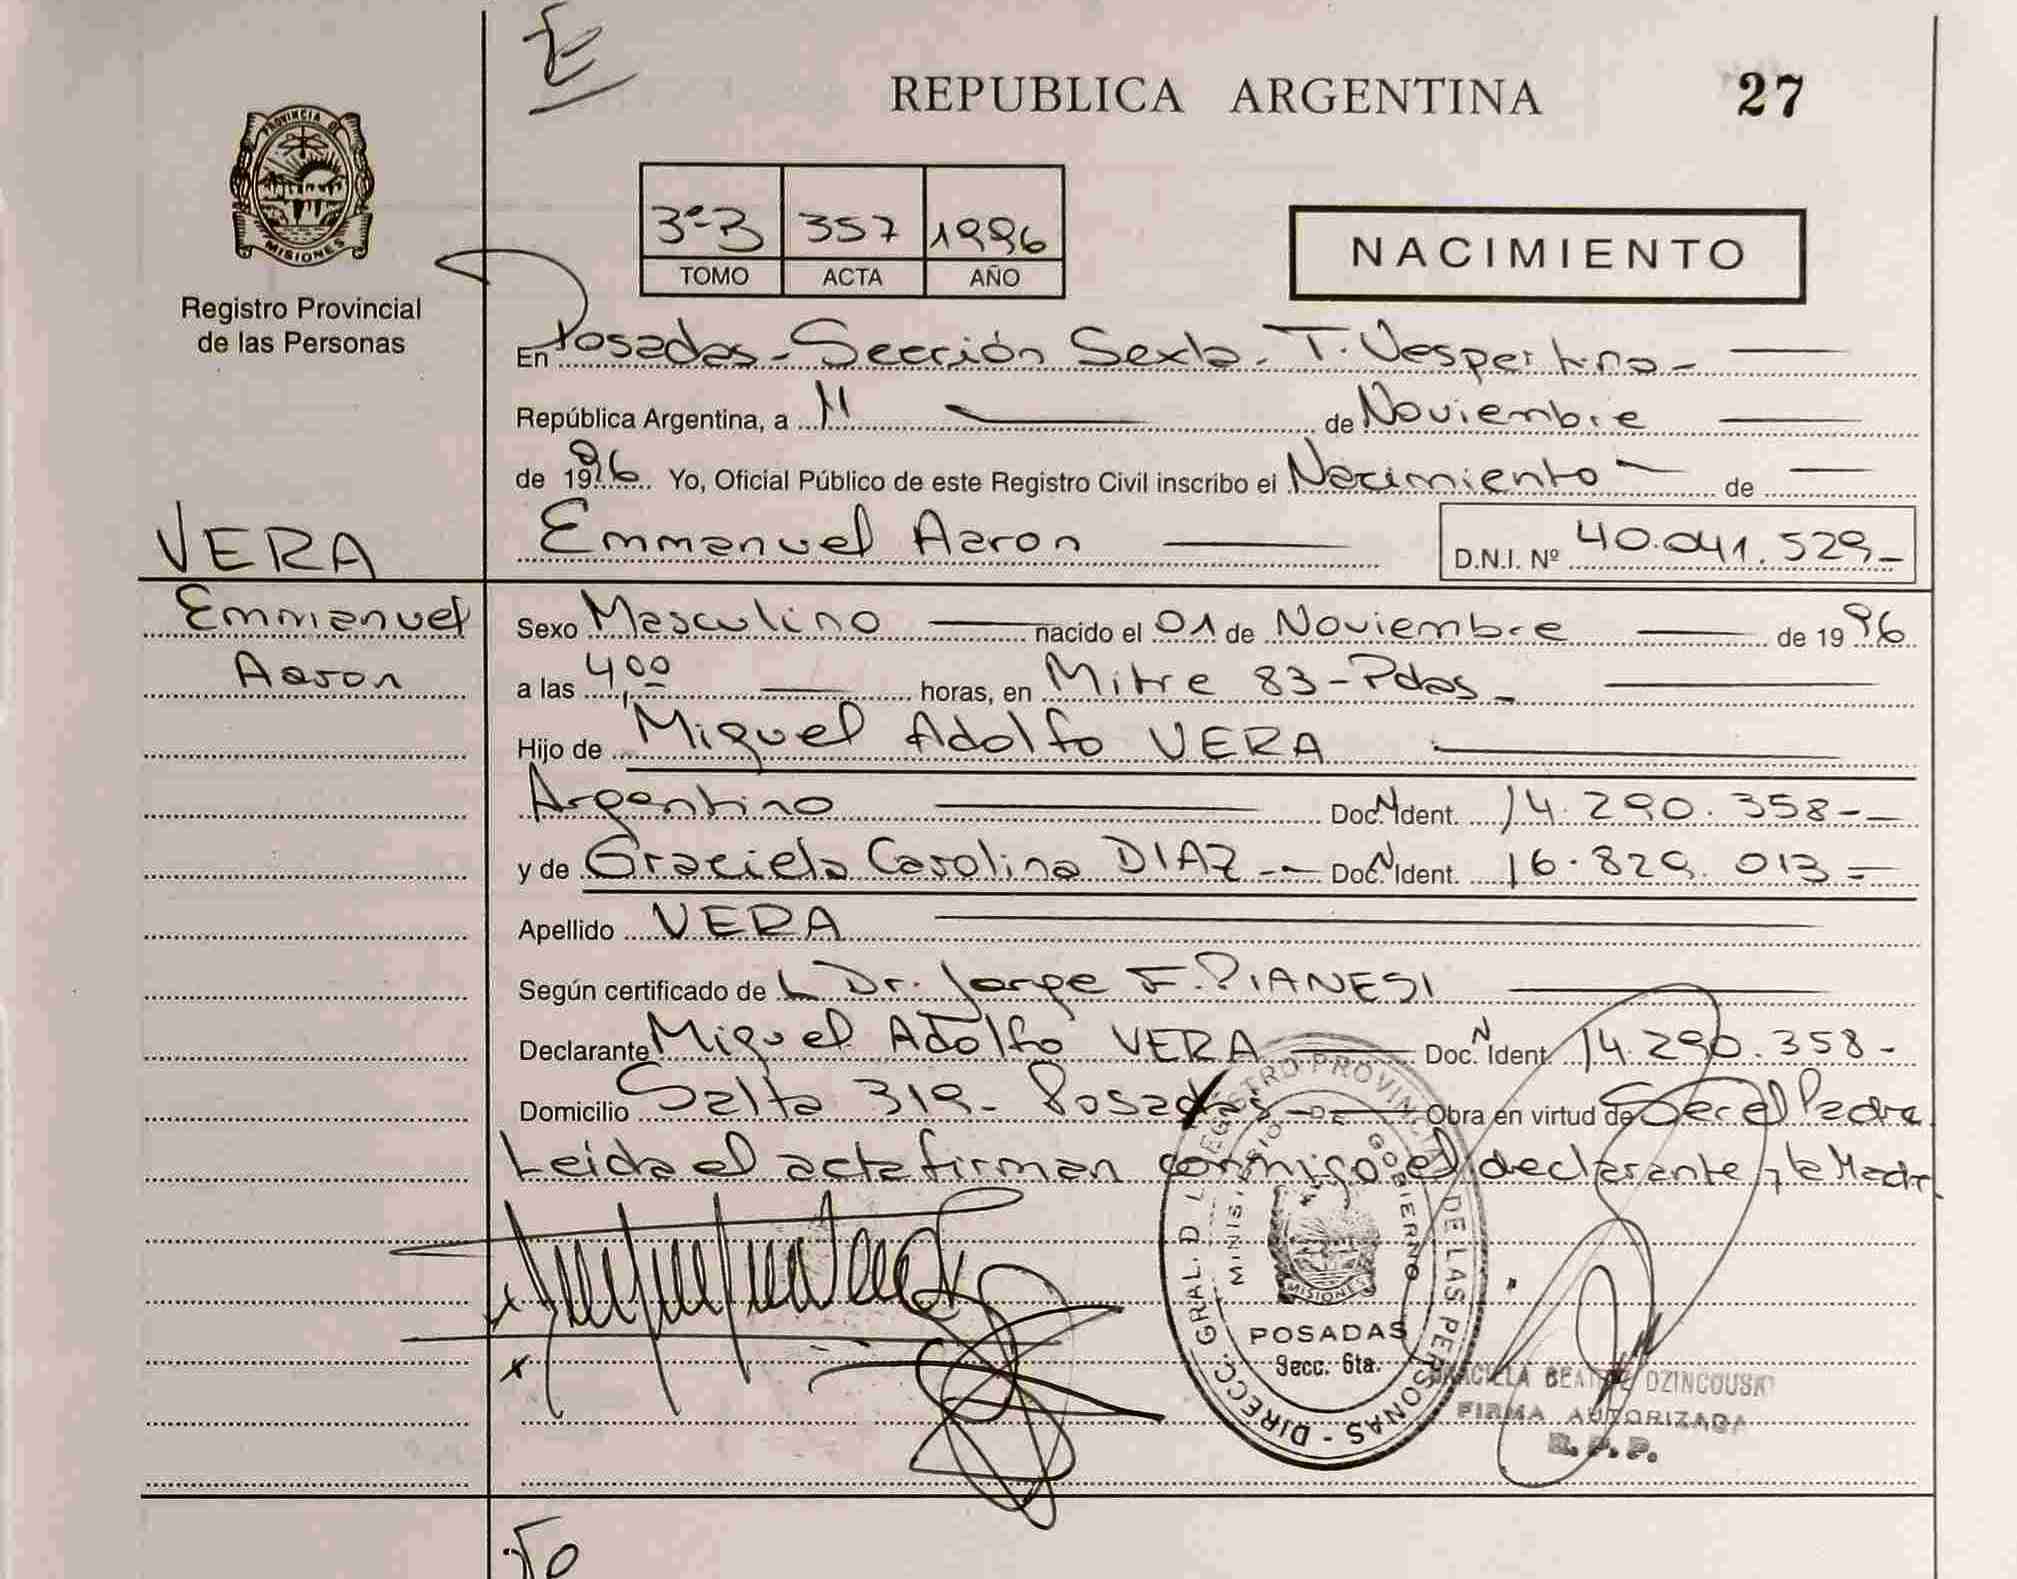 E
REPUBLICA ARGENTINA 27
PROVINCIA DE
MISIONES
Registro Provincial
de las Personas
3º-B 357 1996
TOMO ACTA AÑO
NACIMIENTO
En Posadas - Sección Sexta - T. Vespertino -
República Argentina, a 11 de Noviembre
de 1996 Yo, Oficial Público de este Registro Civil inscribo el Nacimiento de
VERA
Emmanuel
Aaron
Emmanuel Aaron D.N.I. Nº 40.041.529-
Sexo Masculino nacido el 01 de Noviembre de 1996
a las 4,00 horas, en Mitre 83 - Pdas -
Hijo de Miguel Adolfo VERA
Argentino Doc. N Ident. 14.290.358-
y de Graciela Carolina DIAZ - Doc. N Ident. 16.829.013-
Apellido VERA
Según certificado de L Dr. Jorge F. PIANESI
Declarante Miguel Adolfo VERA Doc. N Ident. 14.290.358-
Domicilio Salta 319 - Posadas - Obra en virtud de Ser el Padre
Leida el acta firman conmigo el declarante y la Madre
DIRECC. GRAL. DEL REGISTRO PROVINCIAL DE LAS PERSONAS
MINISTERIO DE GOBIERNO
MISIONES
POSADAS
Secc. 6ta.
GRACIELA BEATRIZ DZINCOUSKI
FIRMA AUTORIZADA
R. P. P.